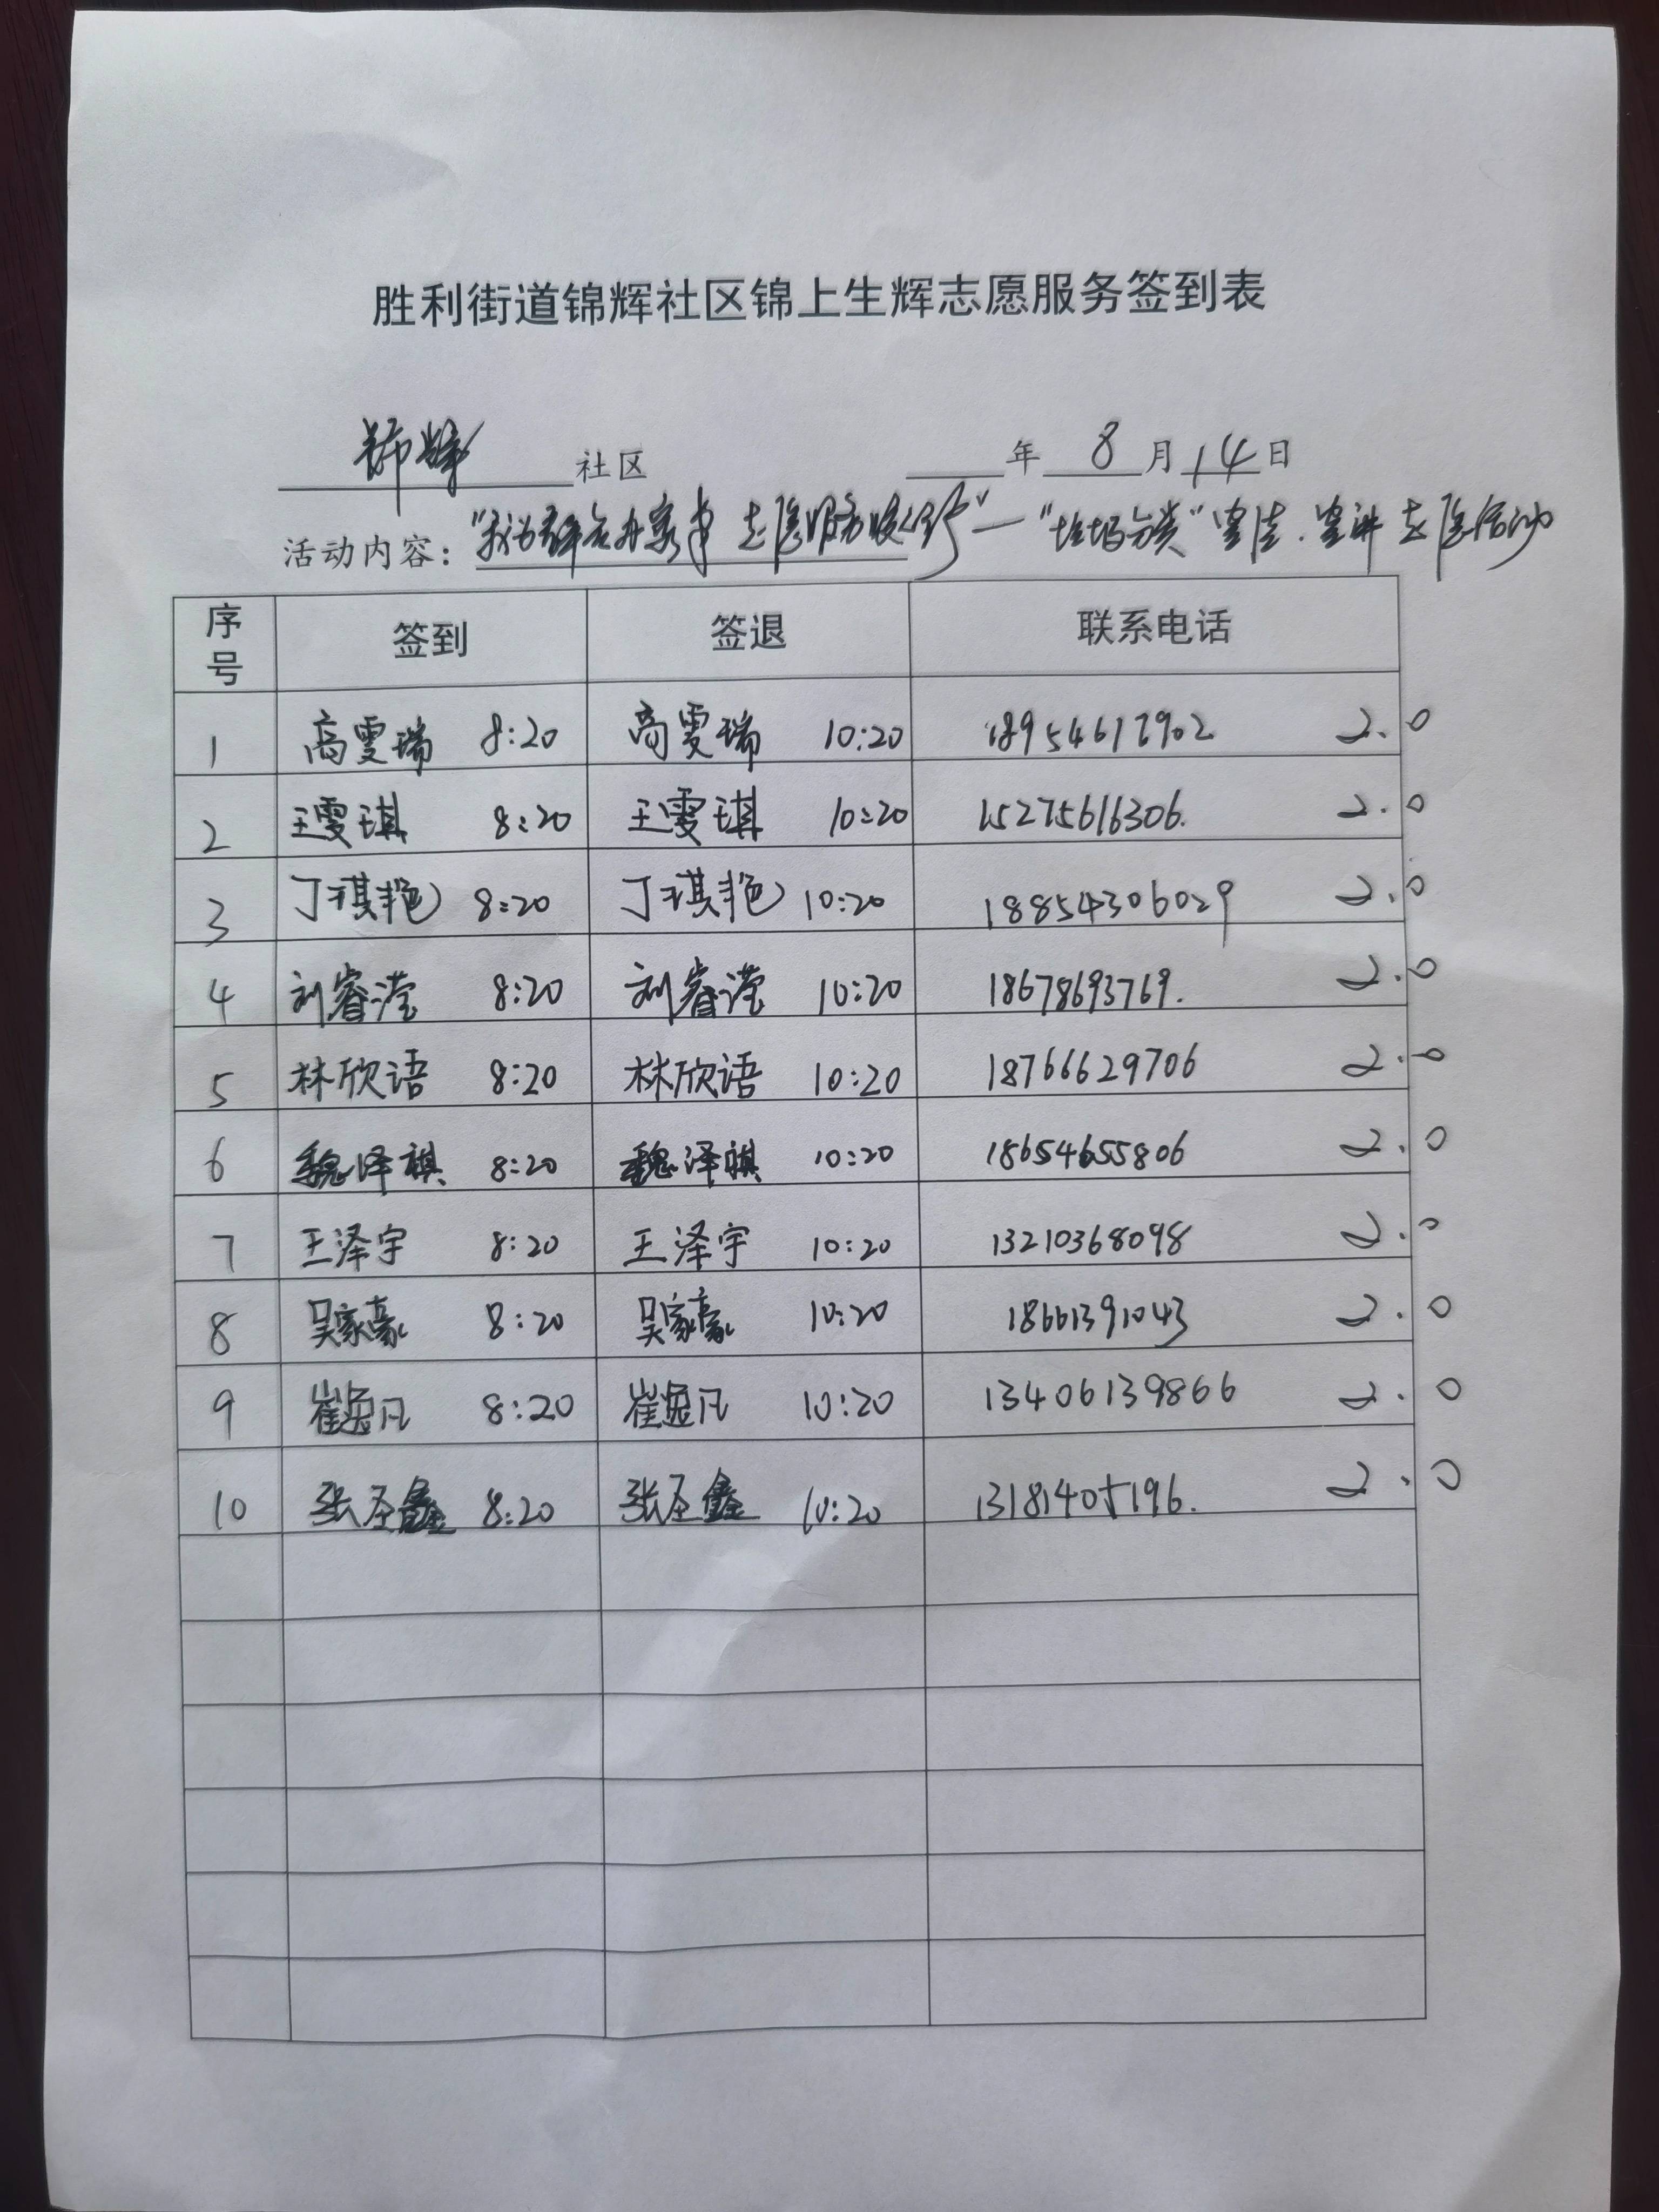 胜利街道锦辉社区锦上生辉志愿服务签到表
锦辉 社区 年 8 月 14 日
活动内容： "我为群众办实事 志愿服务我先行"—"垃圾分类"宣传、宣讲志愿活动
序号 签到 签退 联系电话
1 高雯瑞 8:20 高雯瑞 10:20 18954617902 2.0
2 王雯琪 8:20 王雯琪 10:20 15275616306. 2.0
3 丁琪艳 8:20 丁琪艳 10:20 18854306029 2.0
4 刘睿滢 8:20 刘睿滢 10:20 18678693769. 2.0
5 林欣语 8:20 林欣语 10:20 18766629706 2.0
6 魏泽祺 8:20 魏泽祺 10:20 18654655806 2.0
7 王泽宇 8:20 王泽宇 10:20 13210368098 2.0
8 吴家豪 8:20 吴家豪 10:20 18661391043 2.0
9 崔逸凡 8:20 崔逸凡 10:20 13406139866 2.0
10 张圣鑫 8:20 张圣鑫 10:20 13181405196. 2.0